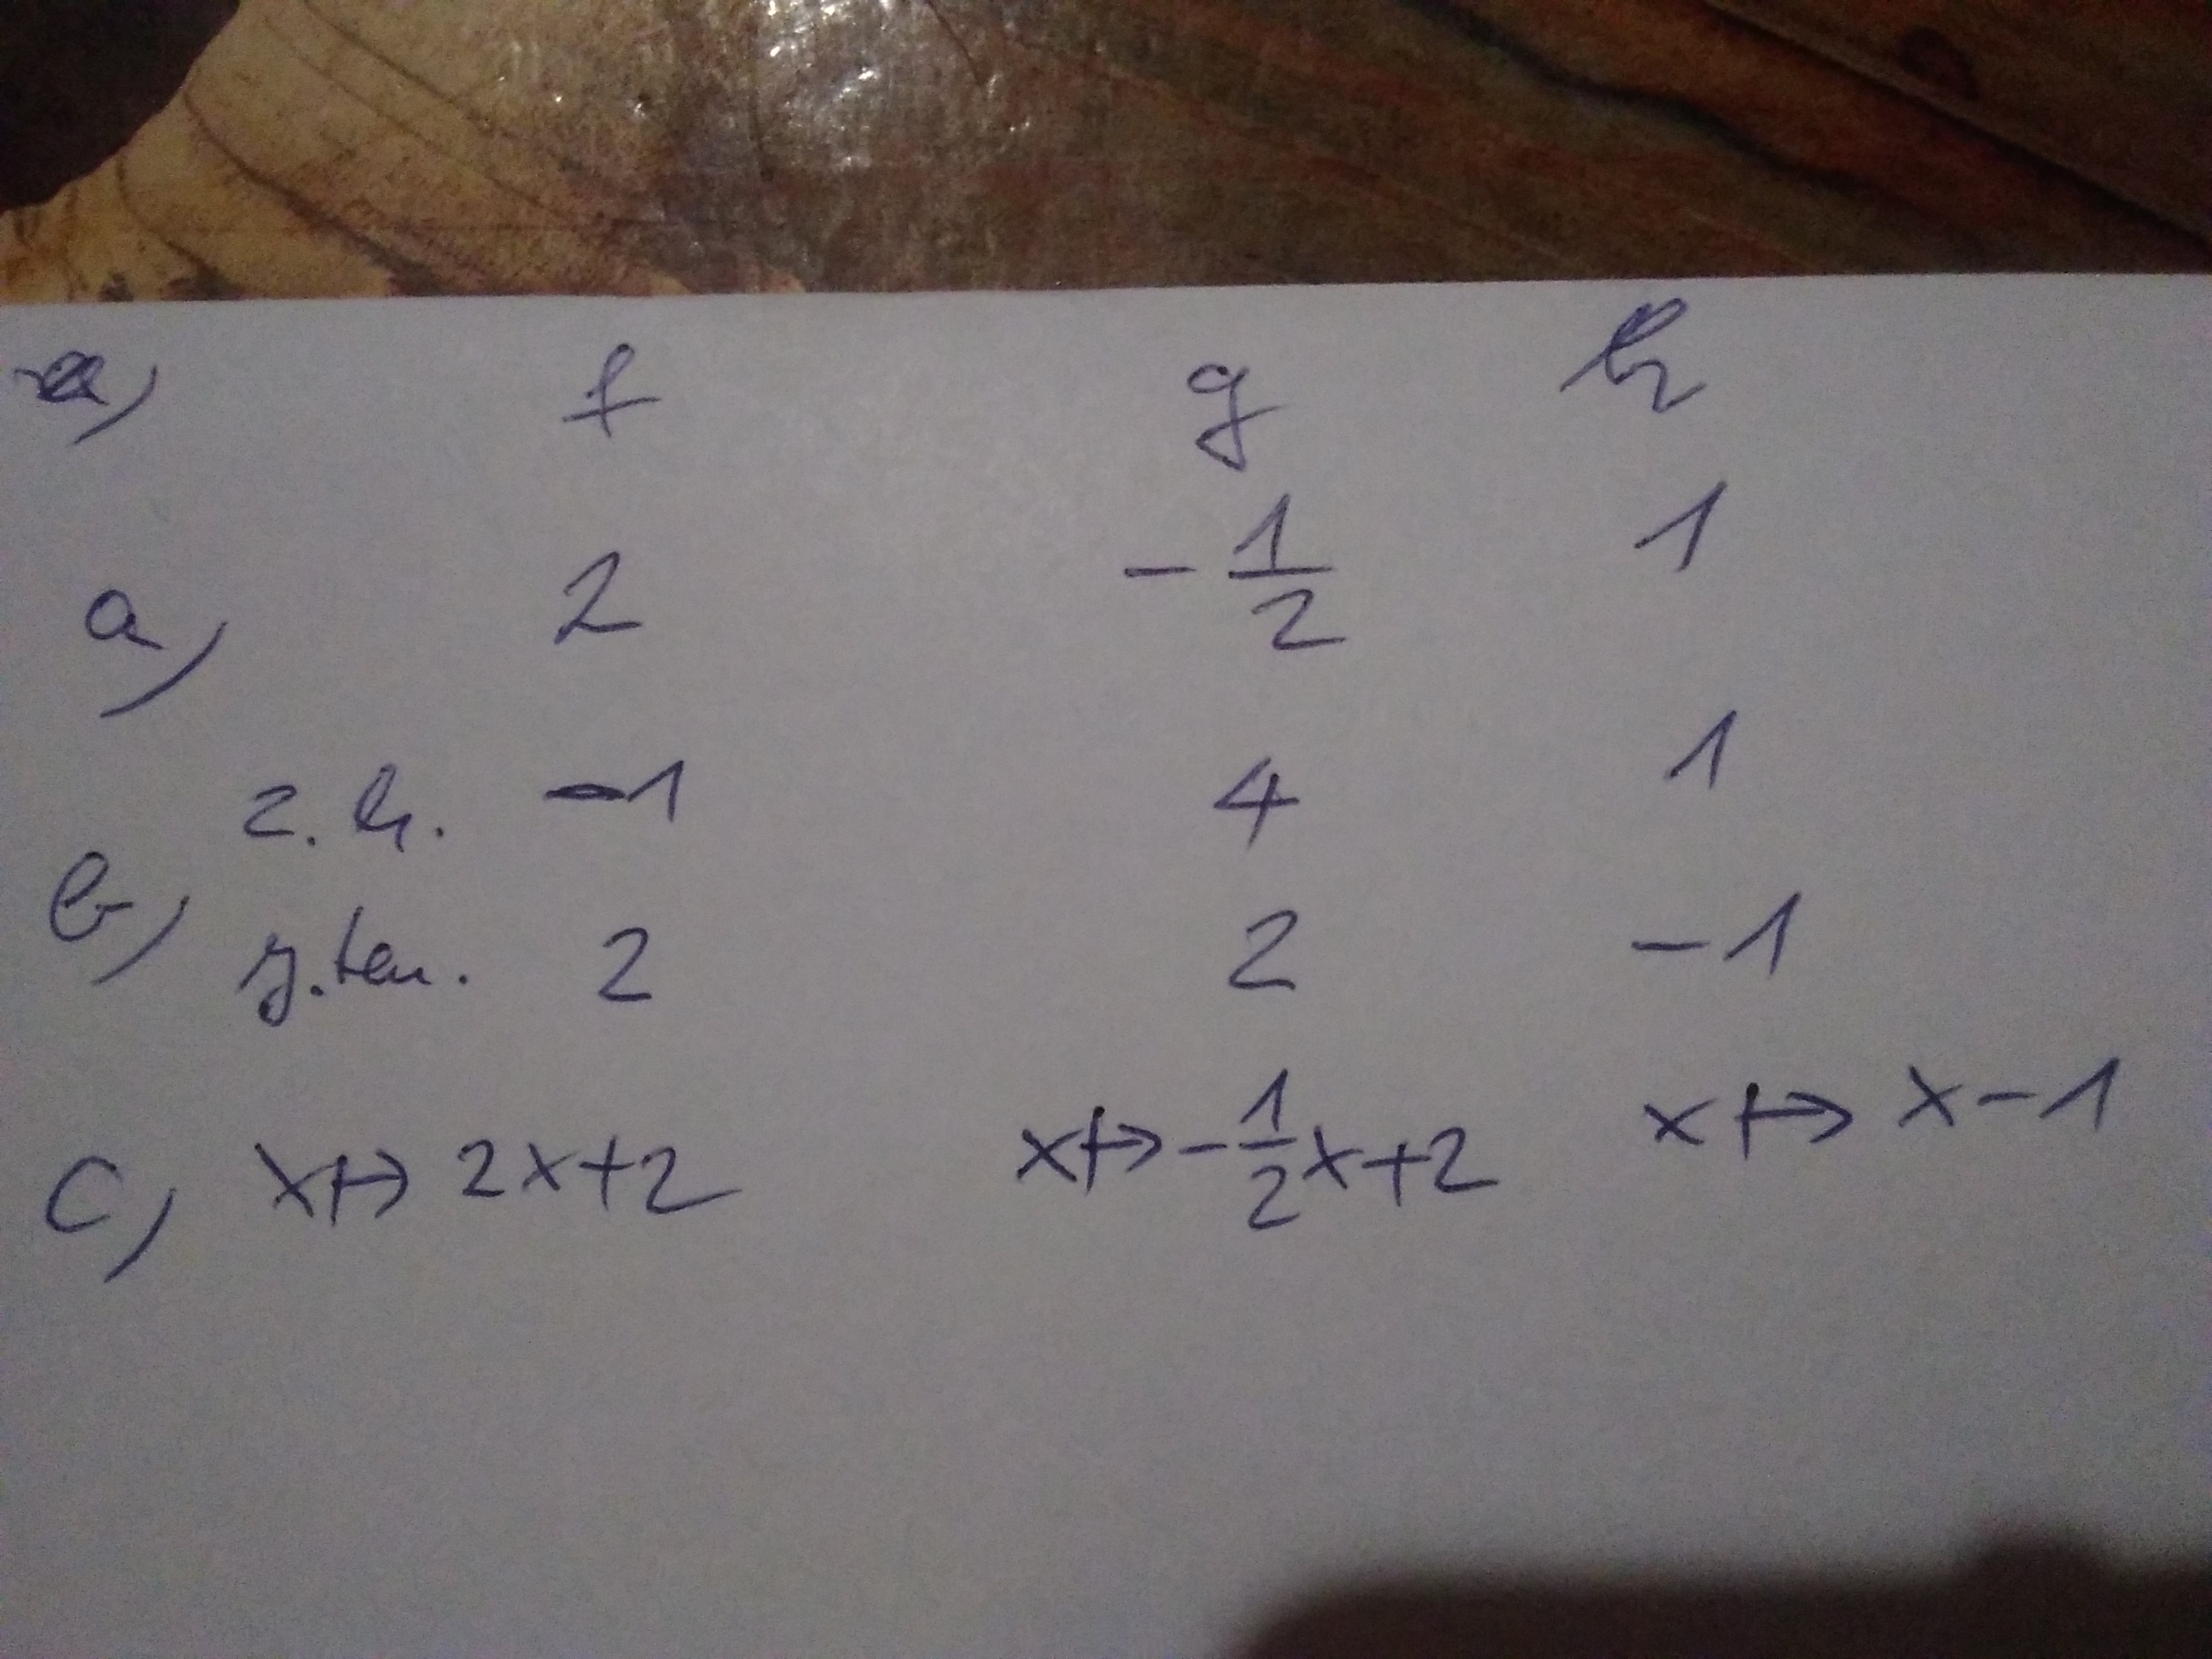 f g h
a) 2 -1/2 1
z.h. -1 4 1
b)
y.ten. 2 2 -1
c) x↦2x+2 x↦-1/2x+2 x↦x-1